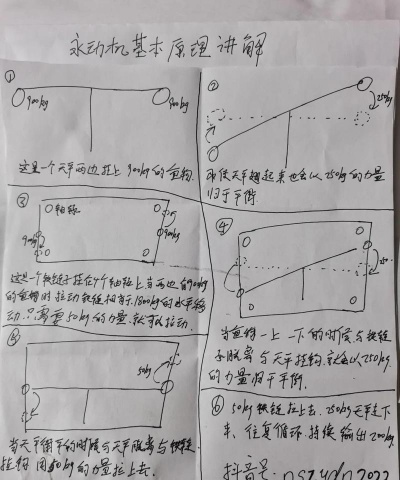 永动机基本原理讲解
①
900kg
900kg
这是一个天平两边挂上900kg的重物.
②
250kg
即使天平翘起来也会以250kg的力量
归于平衡
③
轴轮
900kg
900kg
这是一个铁链子挂在4个轴轮上当两边有900kg
的重物时拉动铁链相当于1800kg的水平移
动.只需要50kg的力量就可以拉动.
④
当重物一上一下的时候与铁链
子脱离与天平挂钩.就会以250kg
的力量归于平衡.
⑤
50kg
当天平衡平的时候与天平脱离与铁链
挂钩用50kg的力量拉上去.
⑥
50kg铁链拉上去.250kg天平走下
来.往复循环.持续输出200kg.
抖音号: